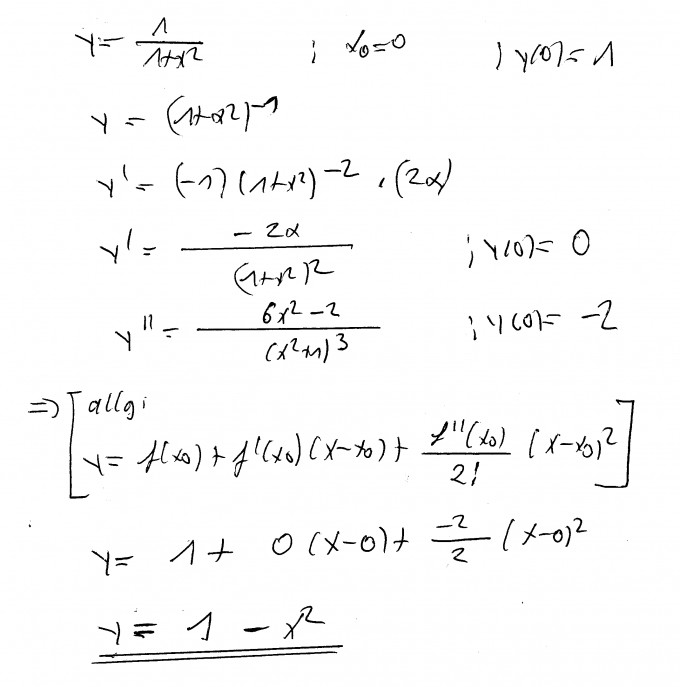 y = 1/(1+x²) ; x₀=0 ; y(0)=1
y = (1+x²)⁻¹
y' = (-1)(1+x²)⁻² · (2x)
y' = -2x/(1+x²)² ; y(0)= 0
y'' = (6x²-2)/(x²+1)³ ; y(0)= -2
=> [allg:
y= f(x₀) + f'(x₀)(x-x₀) + f''(x₀)/2! (x-x₀)²]
y= 1 + 0(x-0) + -2/2 (x-0)²
y = 1 - x²